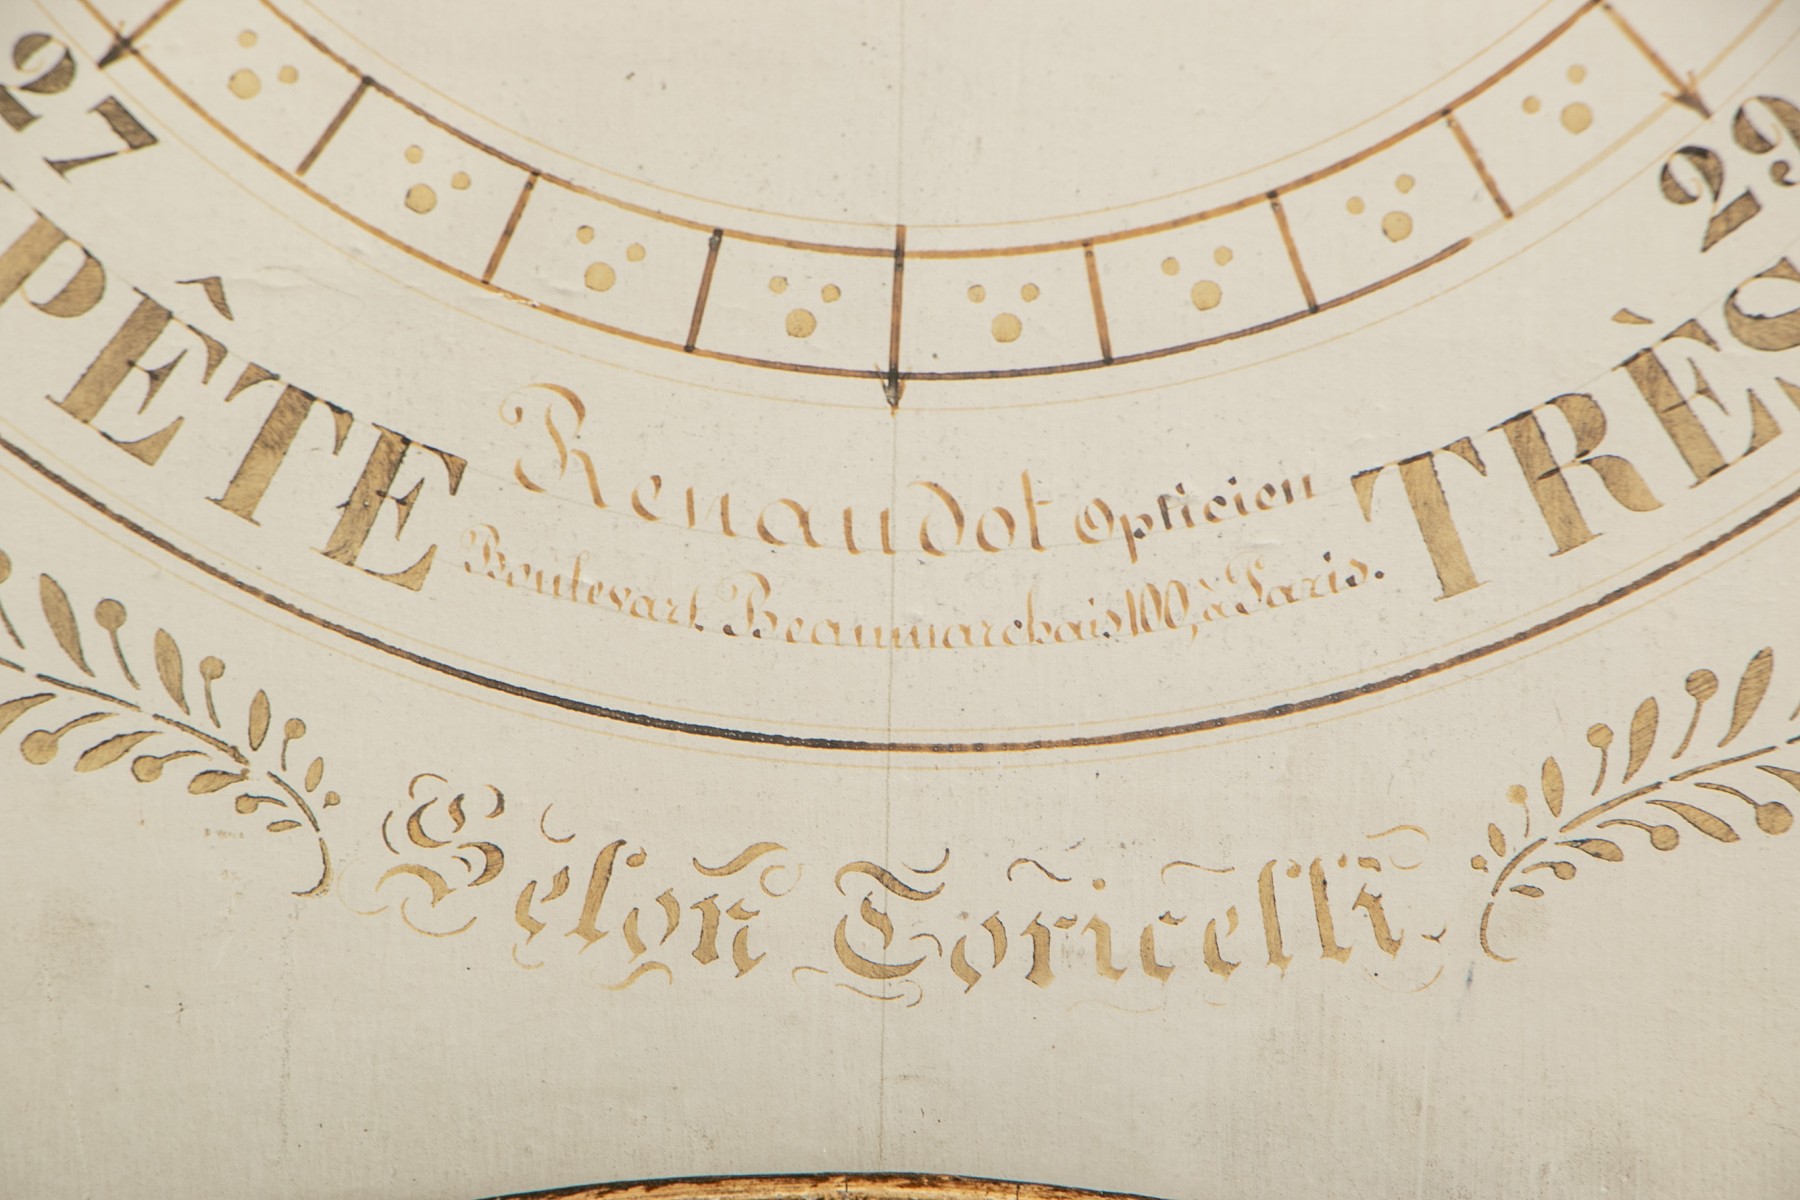 27 29
PÊTE TRÈS
Renaudot Opticien
Boulevart Beaumarchais 100, à Paris.
Selon Toricelli.